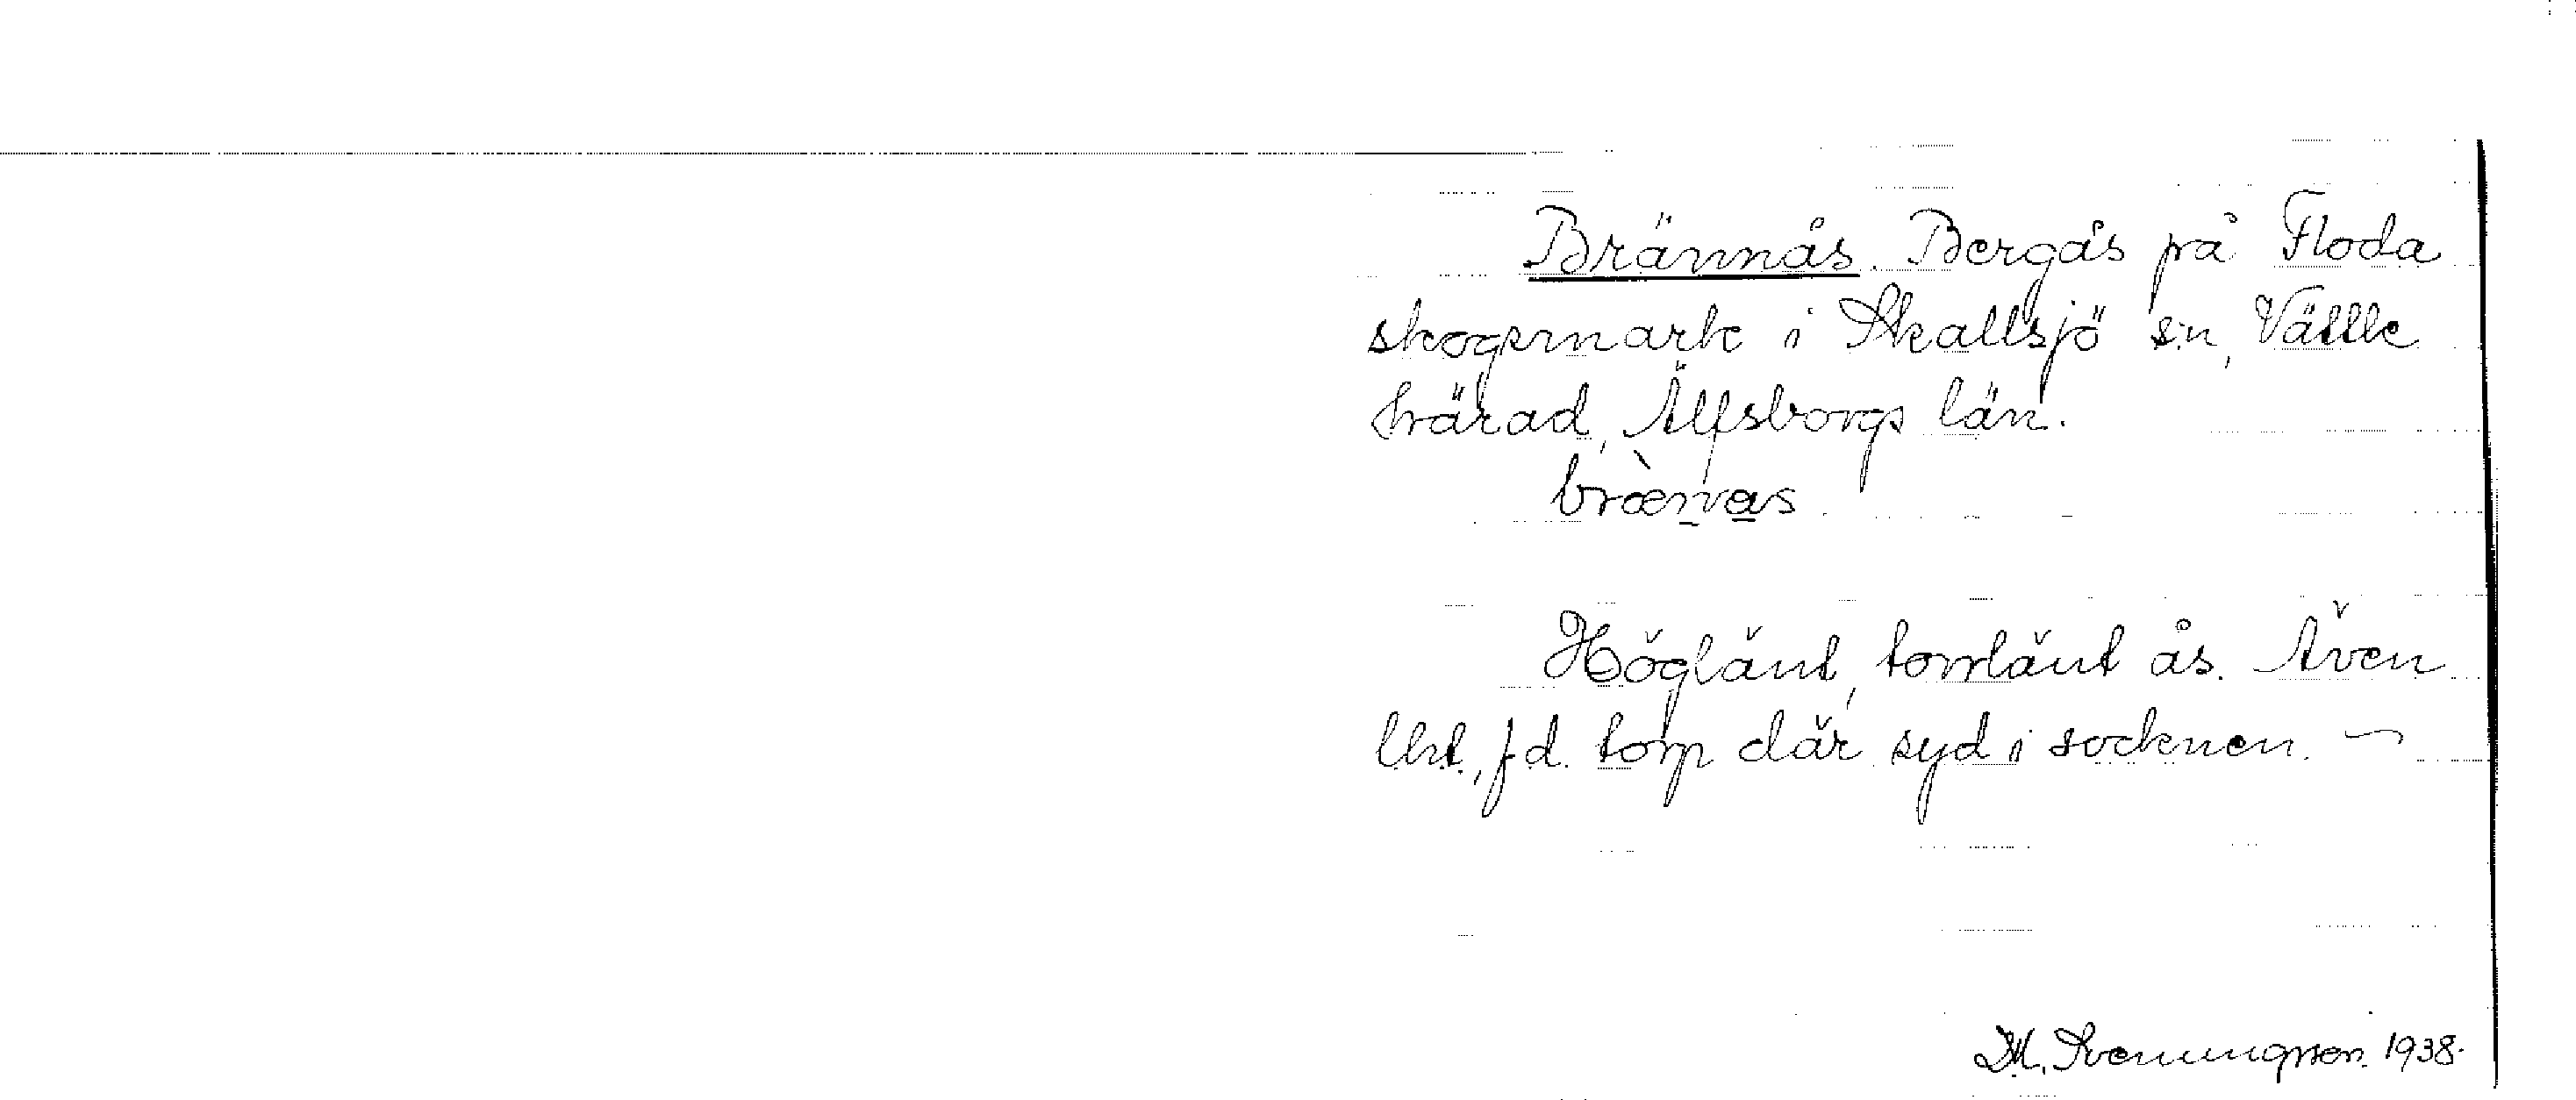 Brännås. Bergås på Floda
skogsmark i Skallsjö sn, Vättle
härad, Älfsborgs län.
bræ̀nas
Höglänt, torrlänt ås. Även
lht., f.d. torp där syd i socknen. ~
M. Svenungsson. 1938.